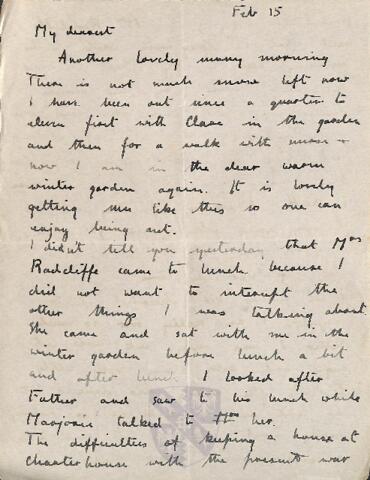 Feb 15
My dearest
Another lovely sunny morning
There is not much snow left now
I have been out since a quarter to
eleven first with Clave in the garden
and then for a walk with nurse +
now I am in the dear warm
winter garden again. It is lovely
getting sun like this so one can
enjoy being out.
I didn't tell you yesterday that Mrs
Radcliffe came to lunch because I
did not want to interrupt the
other things I was talking about.
She came and sat with me in the
winter garden before lunch a bit
and after lunch. I looked after
Father and saw to his lunch while
Marjorie talked to her.
The difficulties of keeping a house at
Charterhouse with the present war